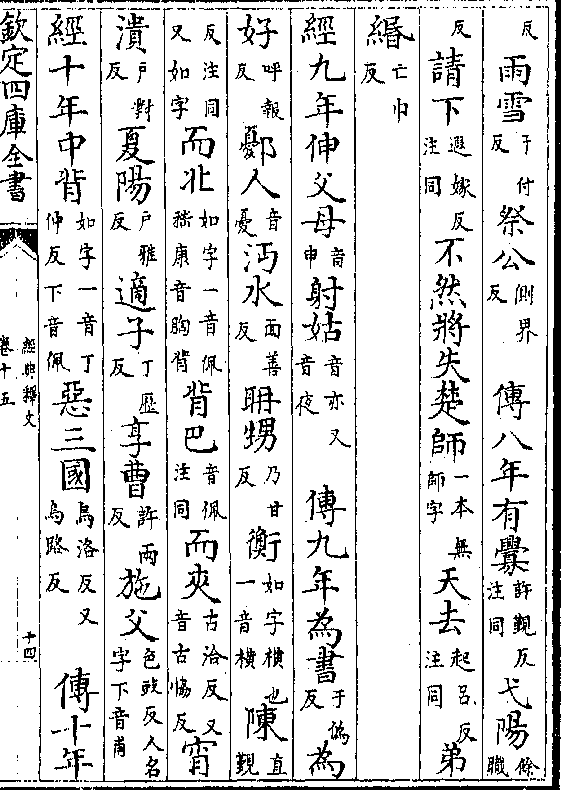 反雨雪于付反祭公側界反傳八年有釁許覲反注同弋陽餘職
反請下遐嫁反注同不然將失楚師一本無師字天去起呂反注同弟
緡亡巾反
經九年伸父母音申射姑音亦又音夜傳九年為書于偽反為
好呼報反鄾人音憂沔水面善反聃甥乃甘反衡如字橫也一音橫陳直覲
反注同又如字而北如字一音佩嵇康音胸背背巴音佩注同而夾古洽反又音古恊反宵
潰戶對反夏陽戶雅反適子丁歷反享曹許兩反施父色豉反人名字下音甫
經十年中背如字一音丁仲反下音佩惡三國烏洛反又烏路反傳十年
欽定四庫全書
經典釋文
卷十五
十四